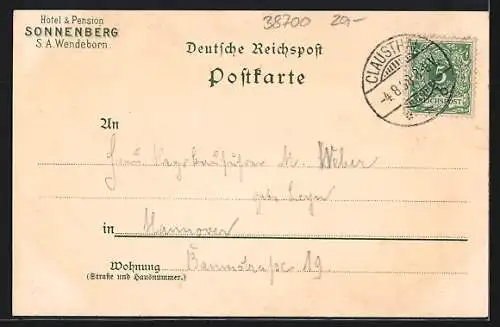 Hotel & Pension
SONNENBERG
S. A. Wendeborn.
38700 20,-
Deutsche Reichspost
Postkarte
CLAUSTHAL
-4.8.
5
REICHSPOST
An
Frau M. Weber
geb.
in Hannover
Wohnung Baumstraße 19.
(Straße und Hausnummer.)